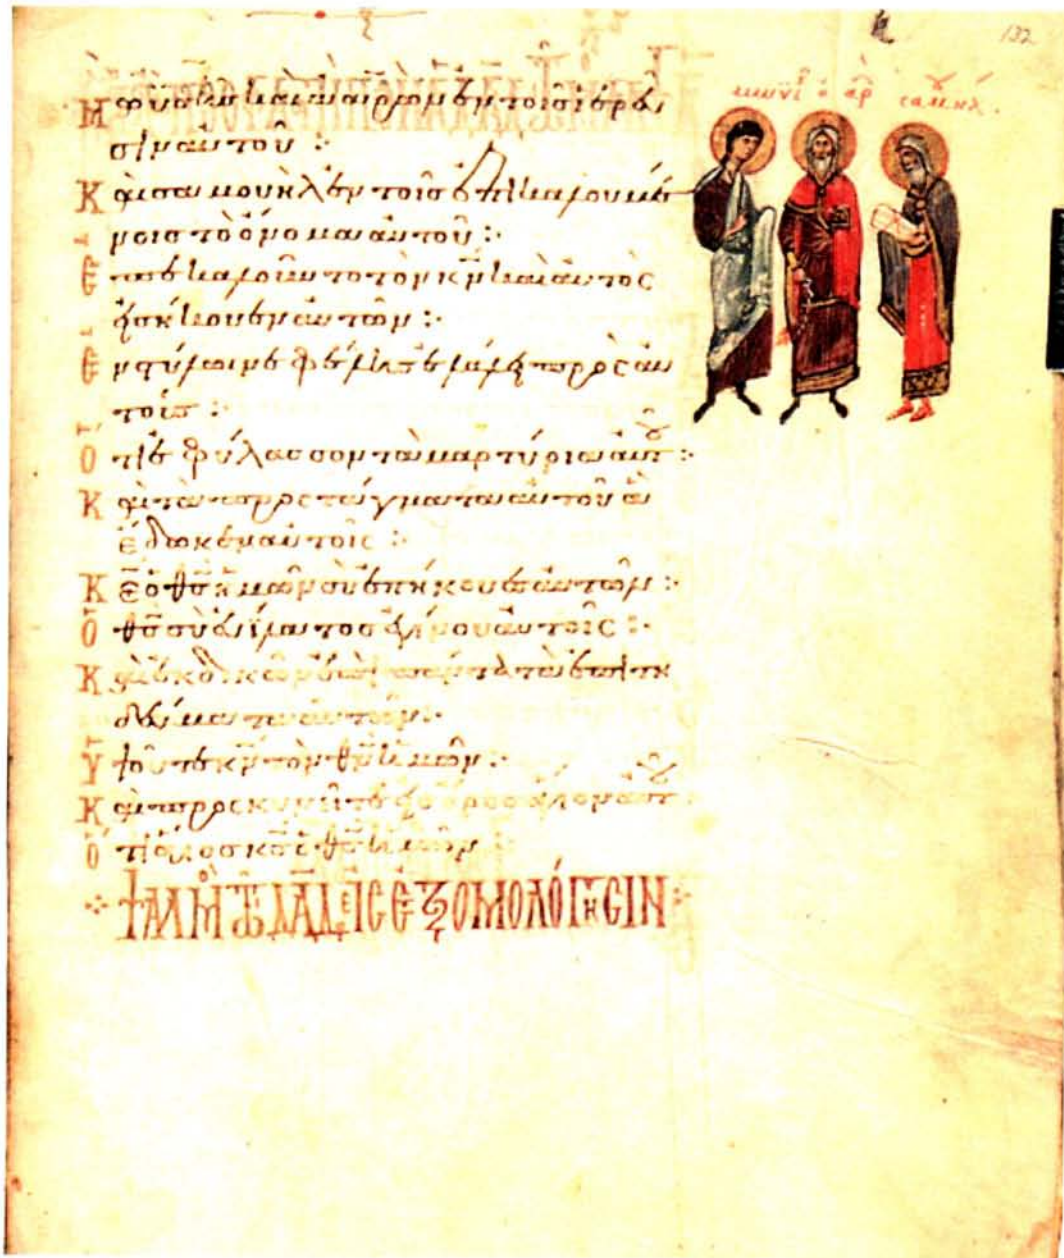 132
μωυσῆ ὁ ἀρ σαμουήλ
Μωυσῆς καὶ ἀαρρὼν ἐν τοῖς ἱερεῦ
σιν αὐτοῦ :
Κ αὶ σαμουὴλ ἐν τοῖς ἐπικαλουμέ
νοις τὸ ὄνομα αὐτοῦ :
Ἐ πεκαλοῦντο τὸν κν καὶ αὐτὸς
εἰσήκουεν αὐτῶν :
Ἐ ν στύλωι νεφέλης ἐλάλει πρὸς αὐ
τούς :
Ὅ τι ἐφύλασσον τὰ μαρτύρια αὐτοῦ :
Κ αὶ τὰ προστάγματα αὐτοῦ ἃ
ἔδωκεν αὐτοῖς :
Κ ε ὁ θς ἡμῶν σὺ ἐπήκουες αὐτῶν :
Ὁ θς σὺ εὐίλατος ἐγίνου αὐτοῖς :
Κ αὶ ἐκδικῶν ἐπὶ πάντα τὰ ἐπιτη
δεύματα αὐτῶν :
Ὑ ψοῦτε κν τὸν θν ἡμῶν :
Κ αὶ προσκυνεῖτε εἰς ὄρος ἅγιον αὐτοῦ :
Ὅ τι ἅγιος κς ὁ θς ἡμῶν
ΨΑΛΜὸς Τῷ ΔΑΔ ΕΙΣ ἘΞΟΜΟΛΌΓΗΣΙΝ